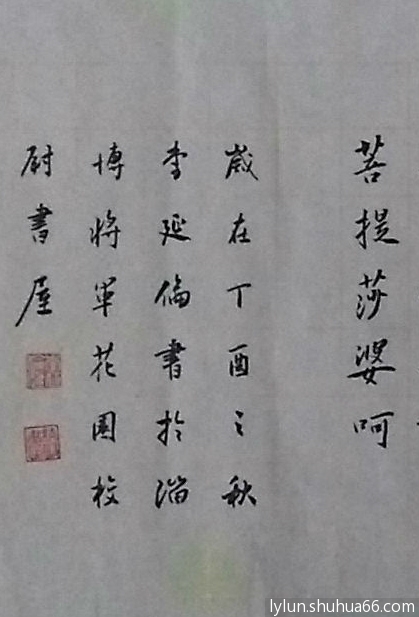 菩提莎婆呵
歲在丁酉之秋
李延倫書於淄
博將軍花園校
尉書屋
lylun.shuhua66.com